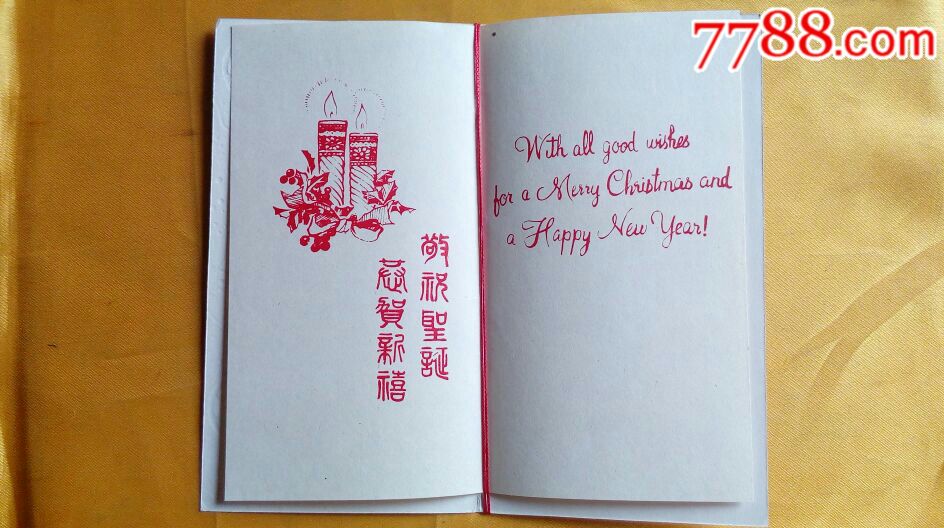 7788.com
敬祝聖誕
恭賀新禧
With all good wishes
for a Merry Christmas and
a Happy New Year!